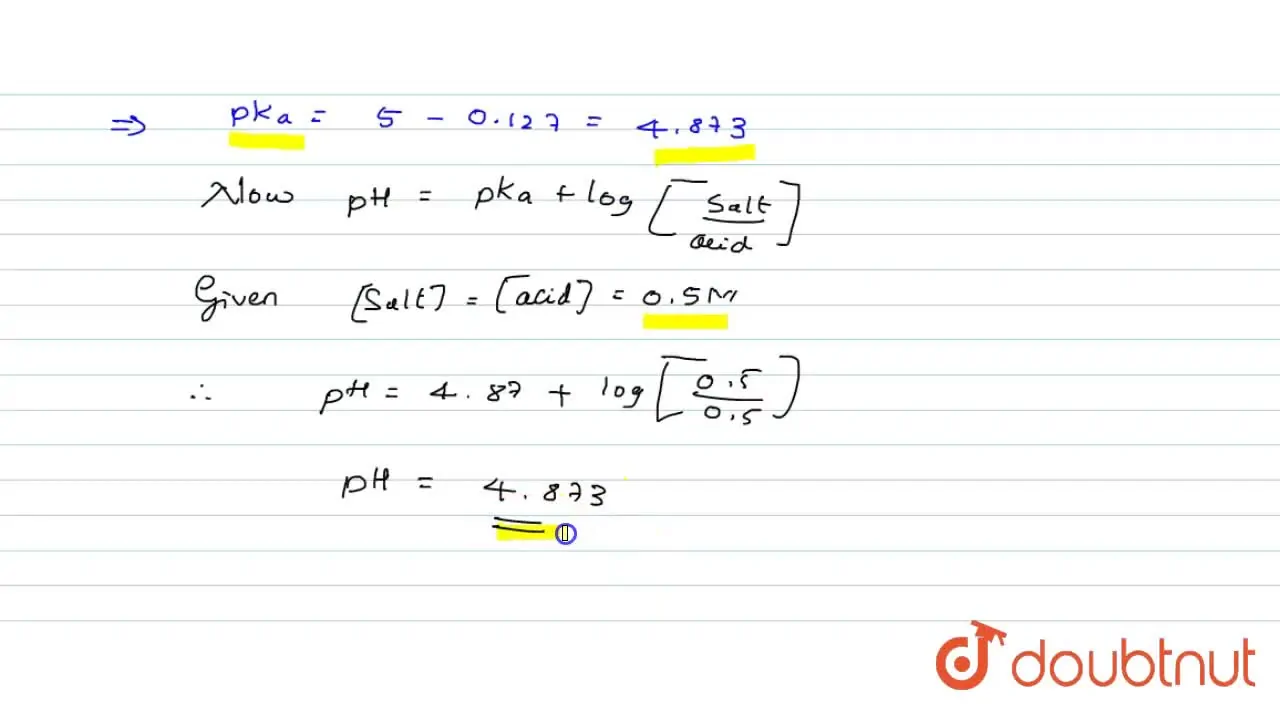 ⇒ pKa = 5 - 0.127 = 4.873
Now pH = pKa + log [Salt/acid]
Given [Salt] = [acid] = 0.5M
∴ pH = 4.87 + log [0.5/0.5]
pH = 4.873
doubtnut